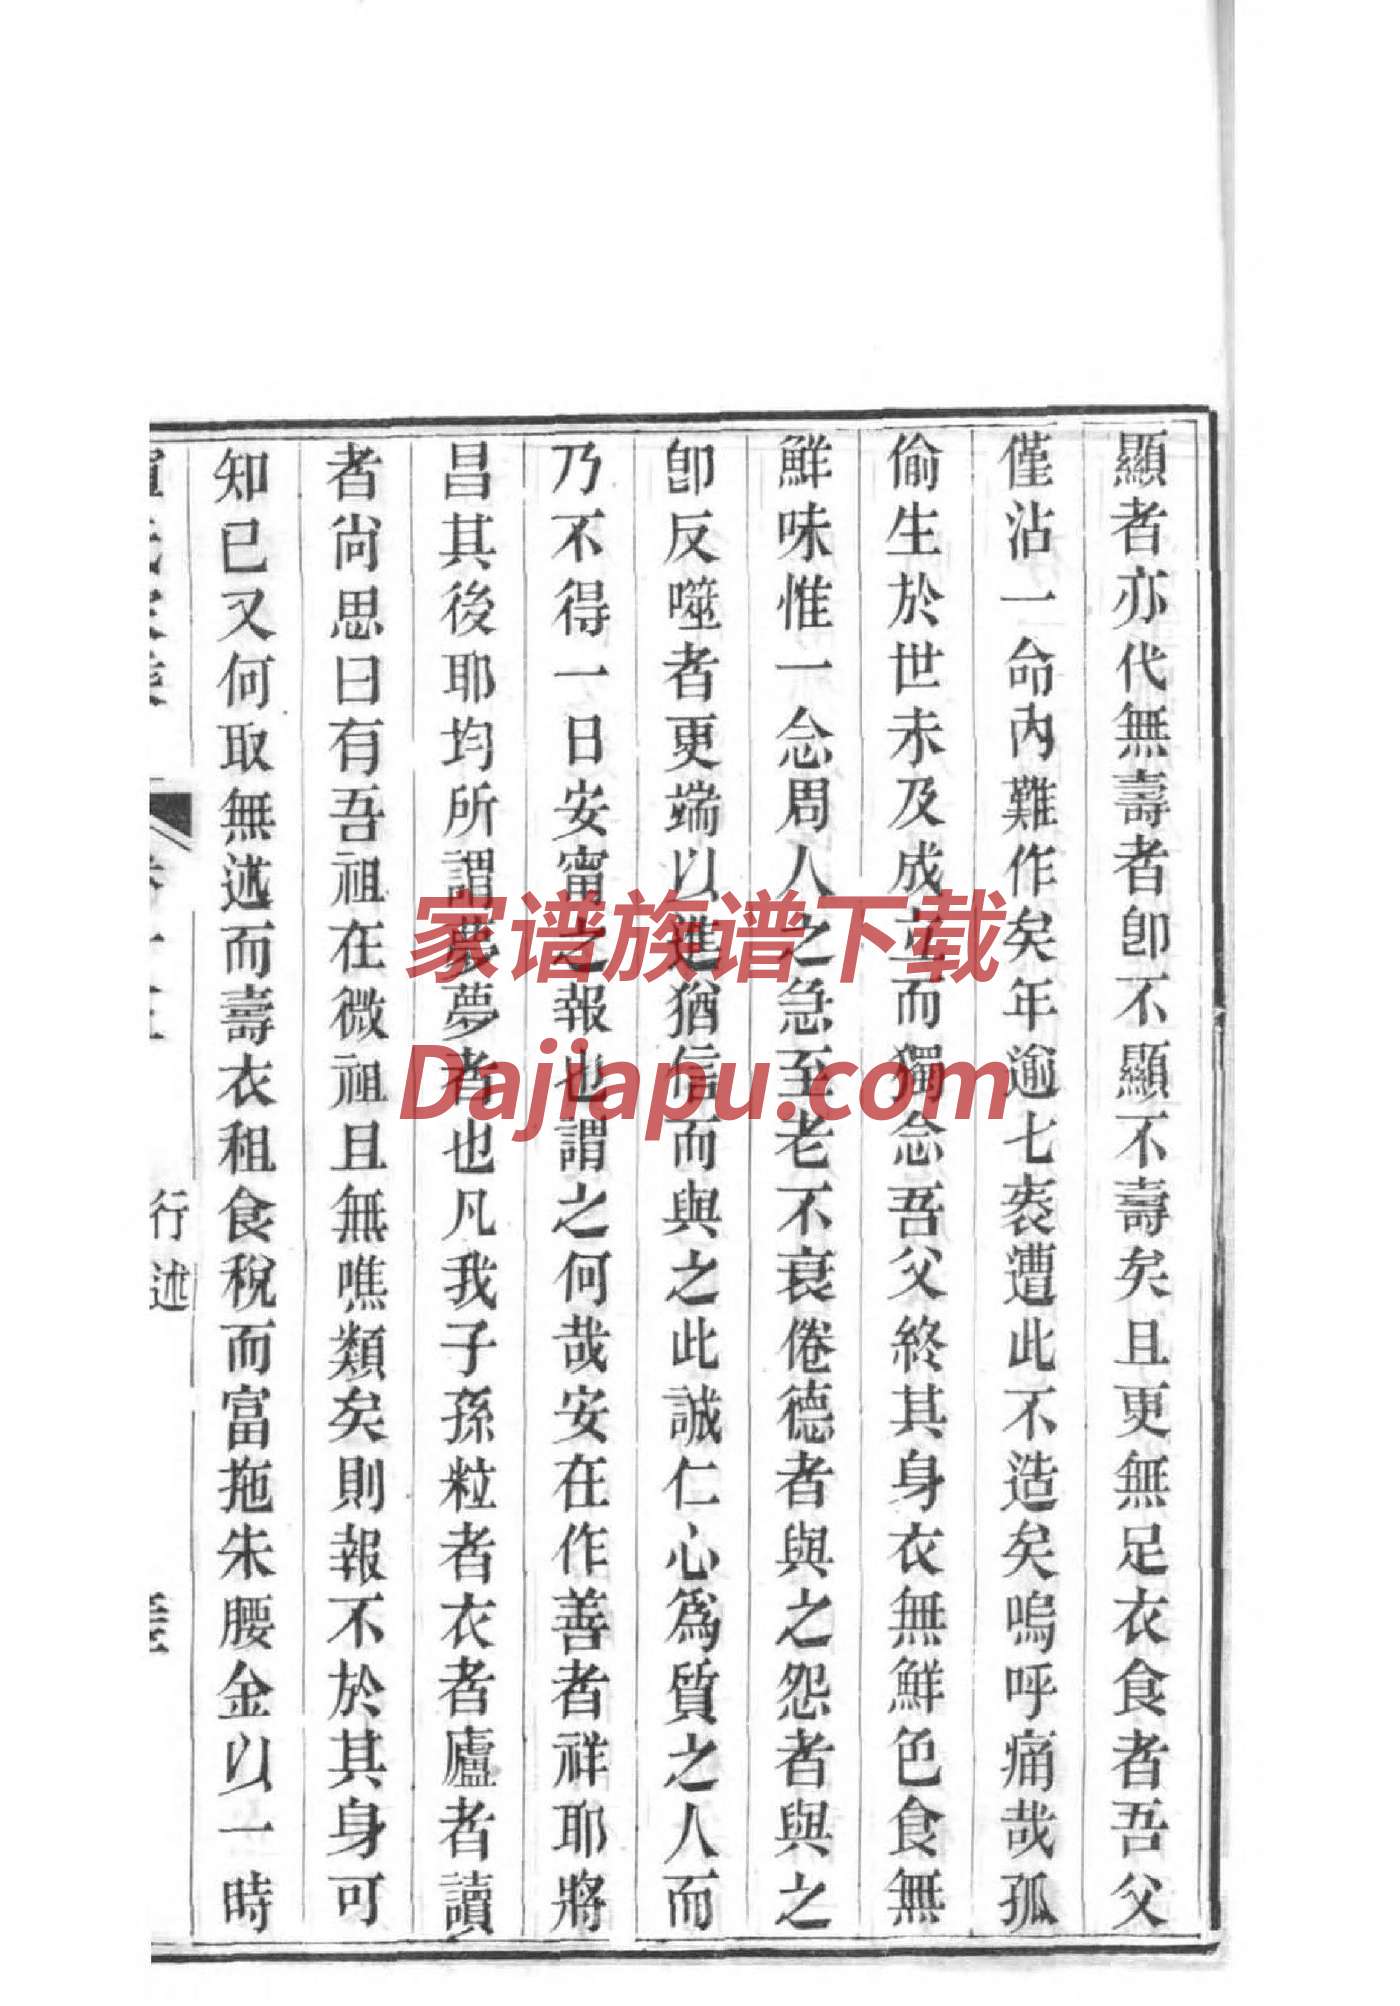 顯者亦代無壽者卽不顯不壽矣且更無足衣食者吾父
僅沾一命內難作矣年逾七袠遭此不造矣嗚呼痛哉孤
偷生於世未及成立而獨念吾父終其身衣無鮮色食無
鮮味惟一念周人之急至老不衰倦德者與之怨者與之
卽反噬者更端以進猶信而與之此誠仁心爲質之人而
乃不得一日安甯之報也謂之何哉安在作善者祥耶將
昌其後耶均所謂夢夢者也凡我子孫粒者衣者廬者讀
者尚思曰有吾祖在微祖且無噍類矣則報不於其身可
知已又何取無述而壽衣租食稅而富拖朱腰金以一時
行述
家谱族谱下载
Dajiapu.com